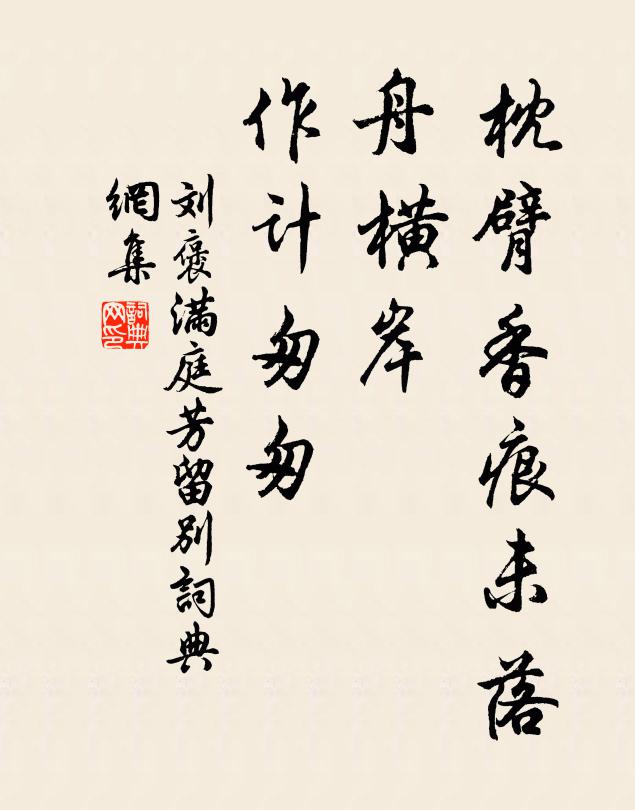 枕臂香痕未落
舟橫岸
作计匆匆
刘褒滿庭芳留別詞典
網集
詞典
网印